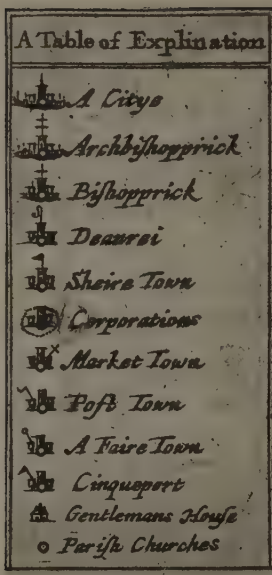 A Table of Explination
A Citye
Archbishopprick
Bishopprick
Deanrei
Sheire Town
Corporations
Market Town
Post Town
A Faire Town
Cinqueport
Gentlemans House
Parish Churches